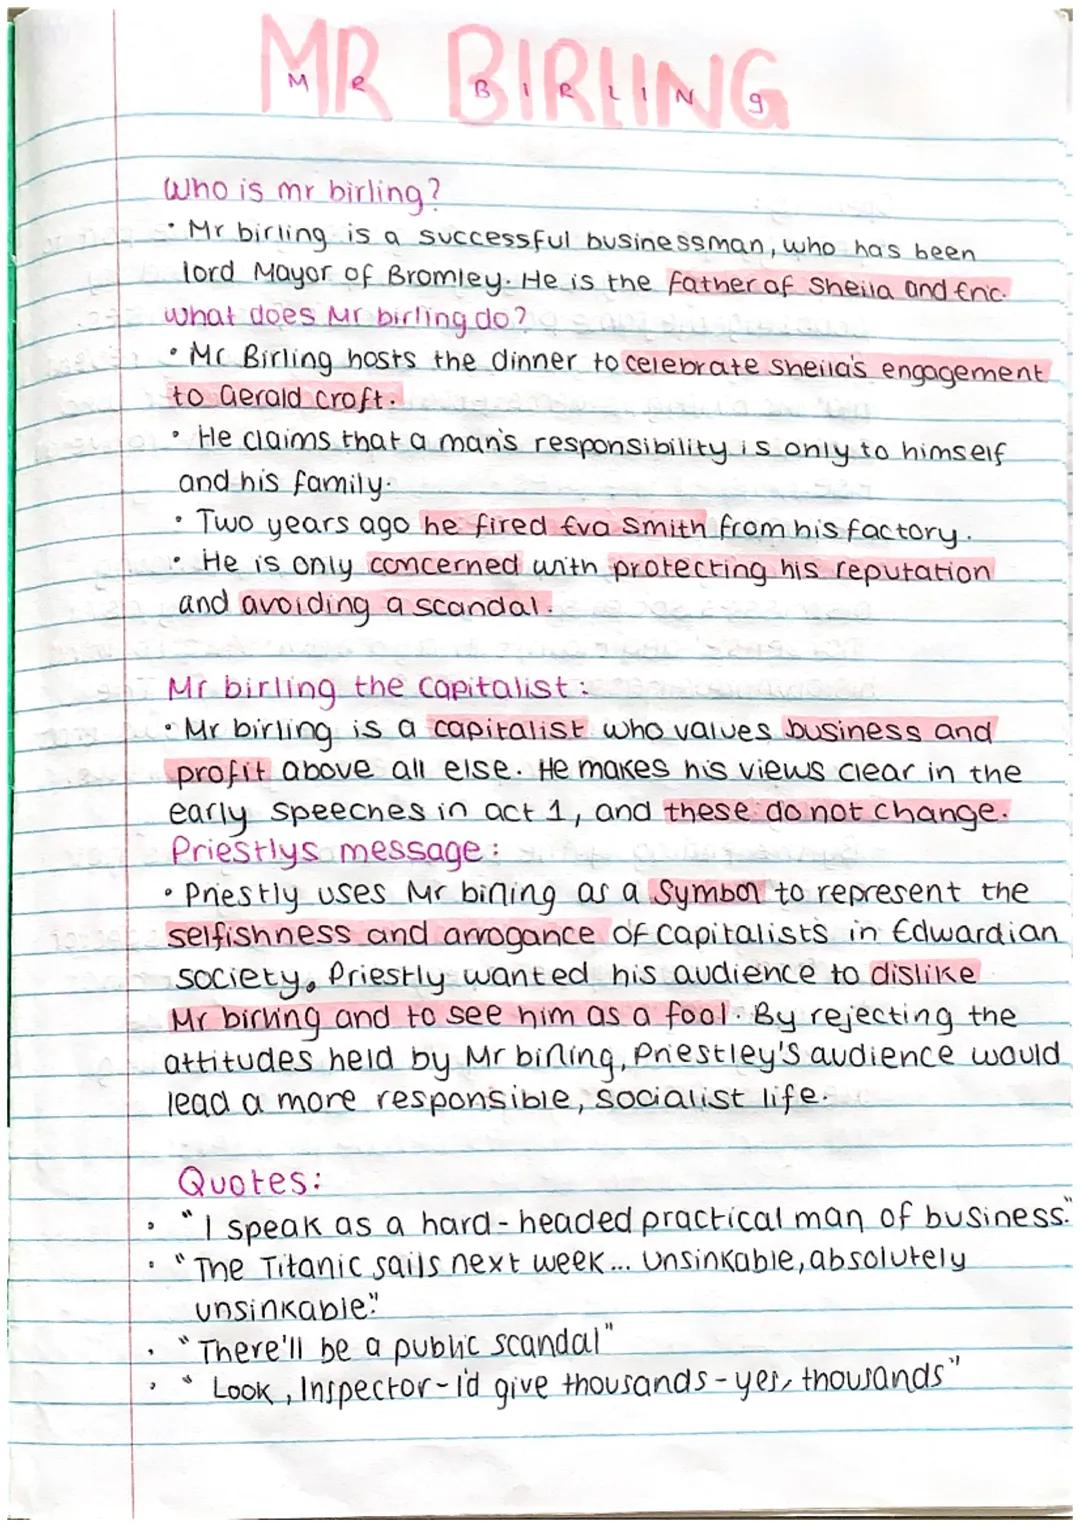 MR BIRLING
MR BIRLINg
Who is mr birling?
• Mr birling is a successful businessman, who has been
lord Mayor of Bromley. He is the father of Sheila and Eric.
What does Mr birling do?
• Mr Birling hosts the dinner to celebrate sheila's engagement
to Gerald croft.
• He claims that a man's responsibility is only to himself
and his family.
• Two years ago he fired Eva Smith from his factory.
• He is only concerned with protecting his reputation
and avoiding a scandal.
Mr birling the capitalist:
• Mr birling is a capitalist who values business and
profit above all else. He makes his views clear in the
early speeches in act 1, and these do not change.
Priestlys message:
• Priestly uses Mr birling as a symbol to represent the
selfishness and arrogance of capitalists in Edwardian
society. Priestly wanted his audience to dislike
Mr birling and to see him as a fool. By rejecting the
attitudes held by Mr birling, Priestley's audience would
lead a more responsible, socialist life.
Quotes:
• "I speak as a hard-headed practical man of business."
• "The Titanic sails next week... Unsinkable, absolutely
unsinkable."
• "There'll be a public scandal"
• "Look, Inspector - I'd give thousands - yes, thousands"